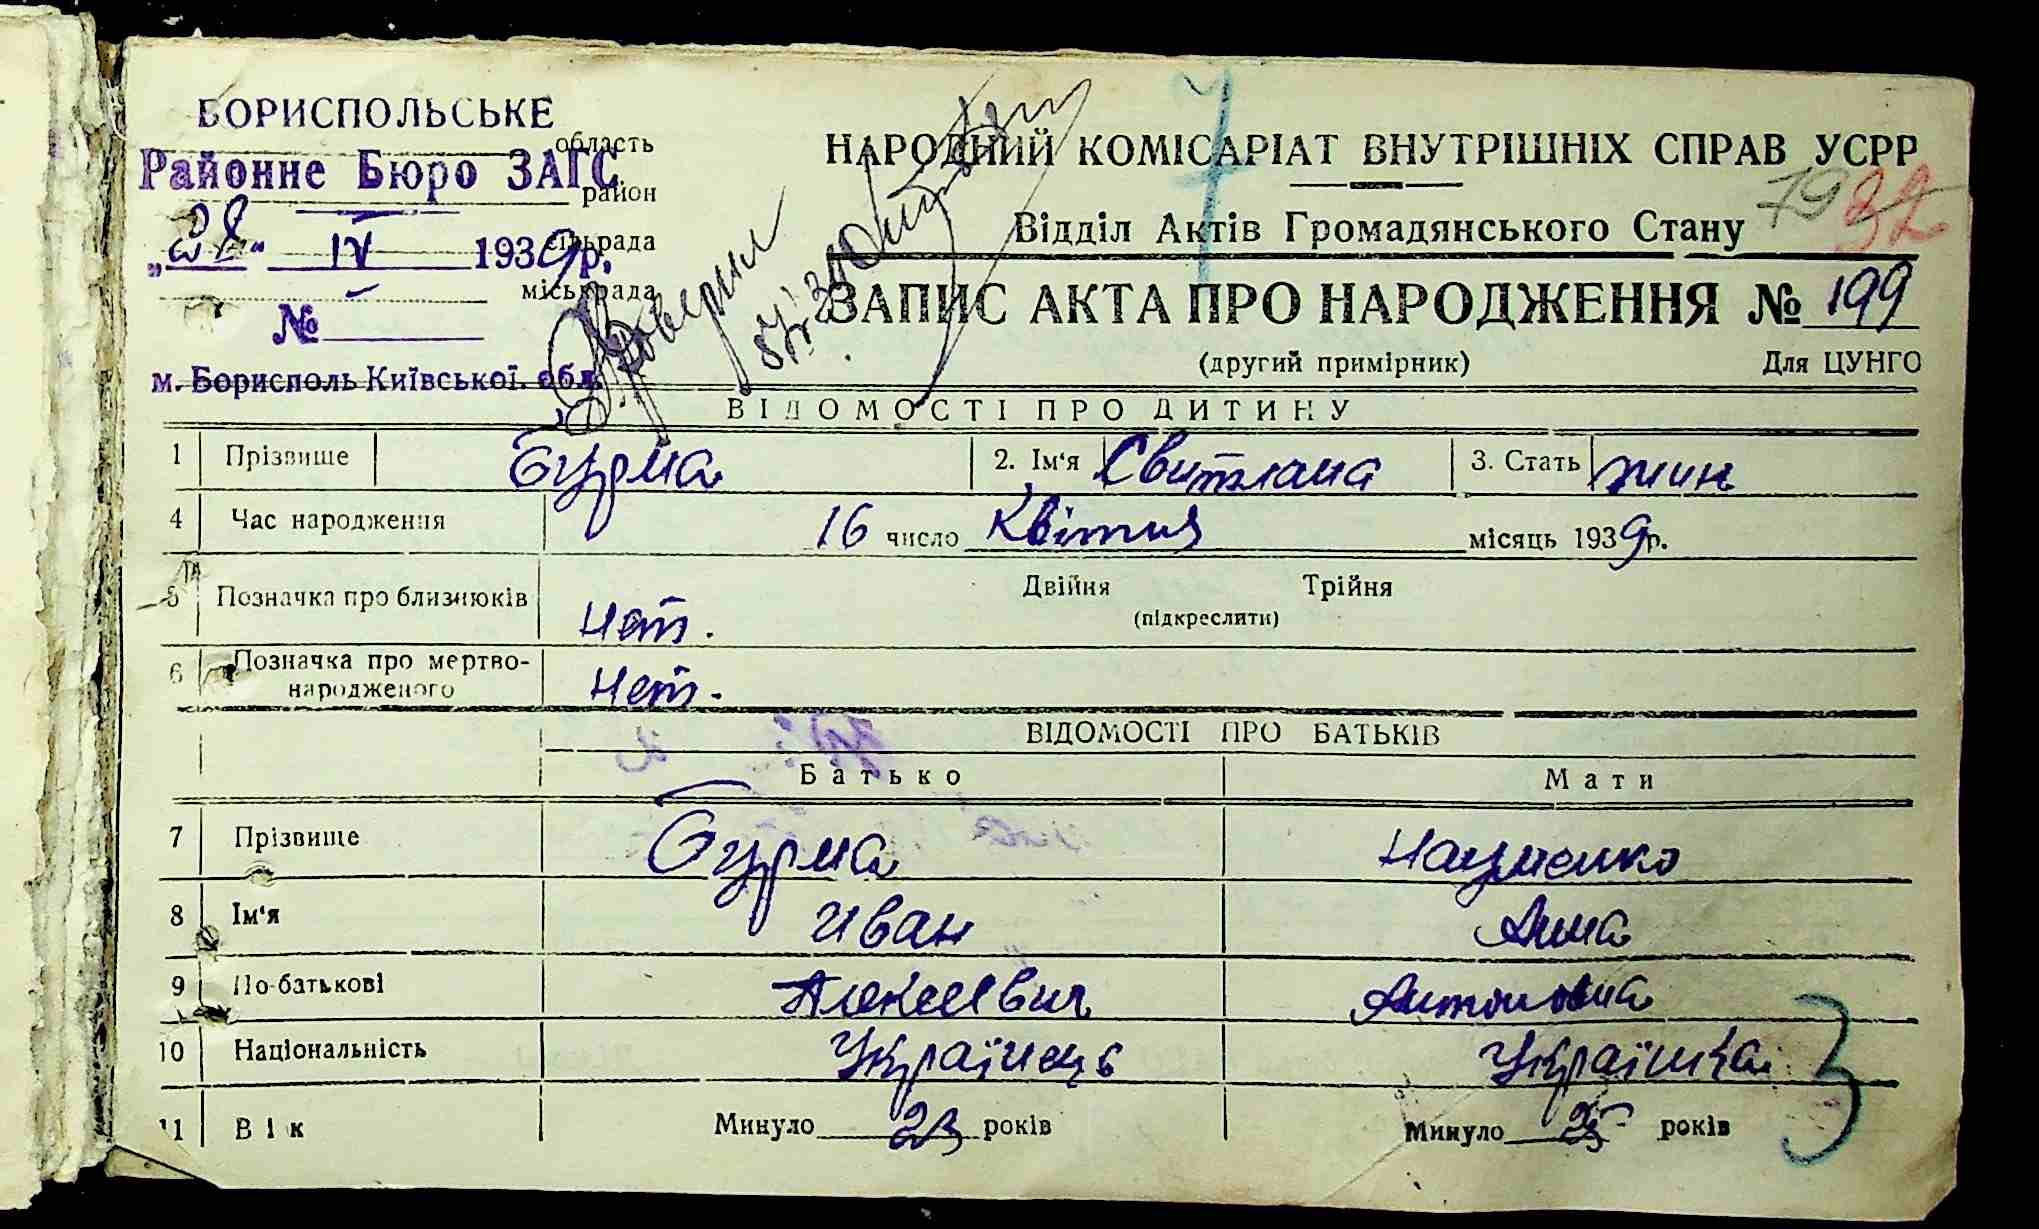 БОРИСПОЛЬСЬКЕ
область
Районне Бюро ЗАГС
район
сільрада
"28" IV 1939 р.
міськрада
№
м. Борисполь Київської обл.
Проверил
7
НАРОДНИЙ КОМІСАРІАТ ВНУТРІШНІХ СПРАВ УСРР
Відділ Актів Громадянського Стану
79 82
ЗАПИС АКТА ПРО НАРОДЖЕННЯ № 199
(другий примірник) Для ЦУНГО
ВІДОМОСТІ ПРО ДИТИНУ
1 Прізвище Бурма 2. Ім'я Свитлана 3. Стать жин
4 Час народження 16 число Квітня місяць 1939 р.
5 Позначка про близнюків Нет. Двійня Трійня
(підкреслити)
6 Позначка про мертво-
народженого Нет.
ВІДОМОСТІ ПРО БАТЬКІВ
Батько Мати
7 Прізвище Бурма Науменко
8 Ім'я Иван Анна
9 По-батькові Алексеевич Антоновна
10 Національність Українець Українка
3
11 Вік Минуло 23 років Минуло років